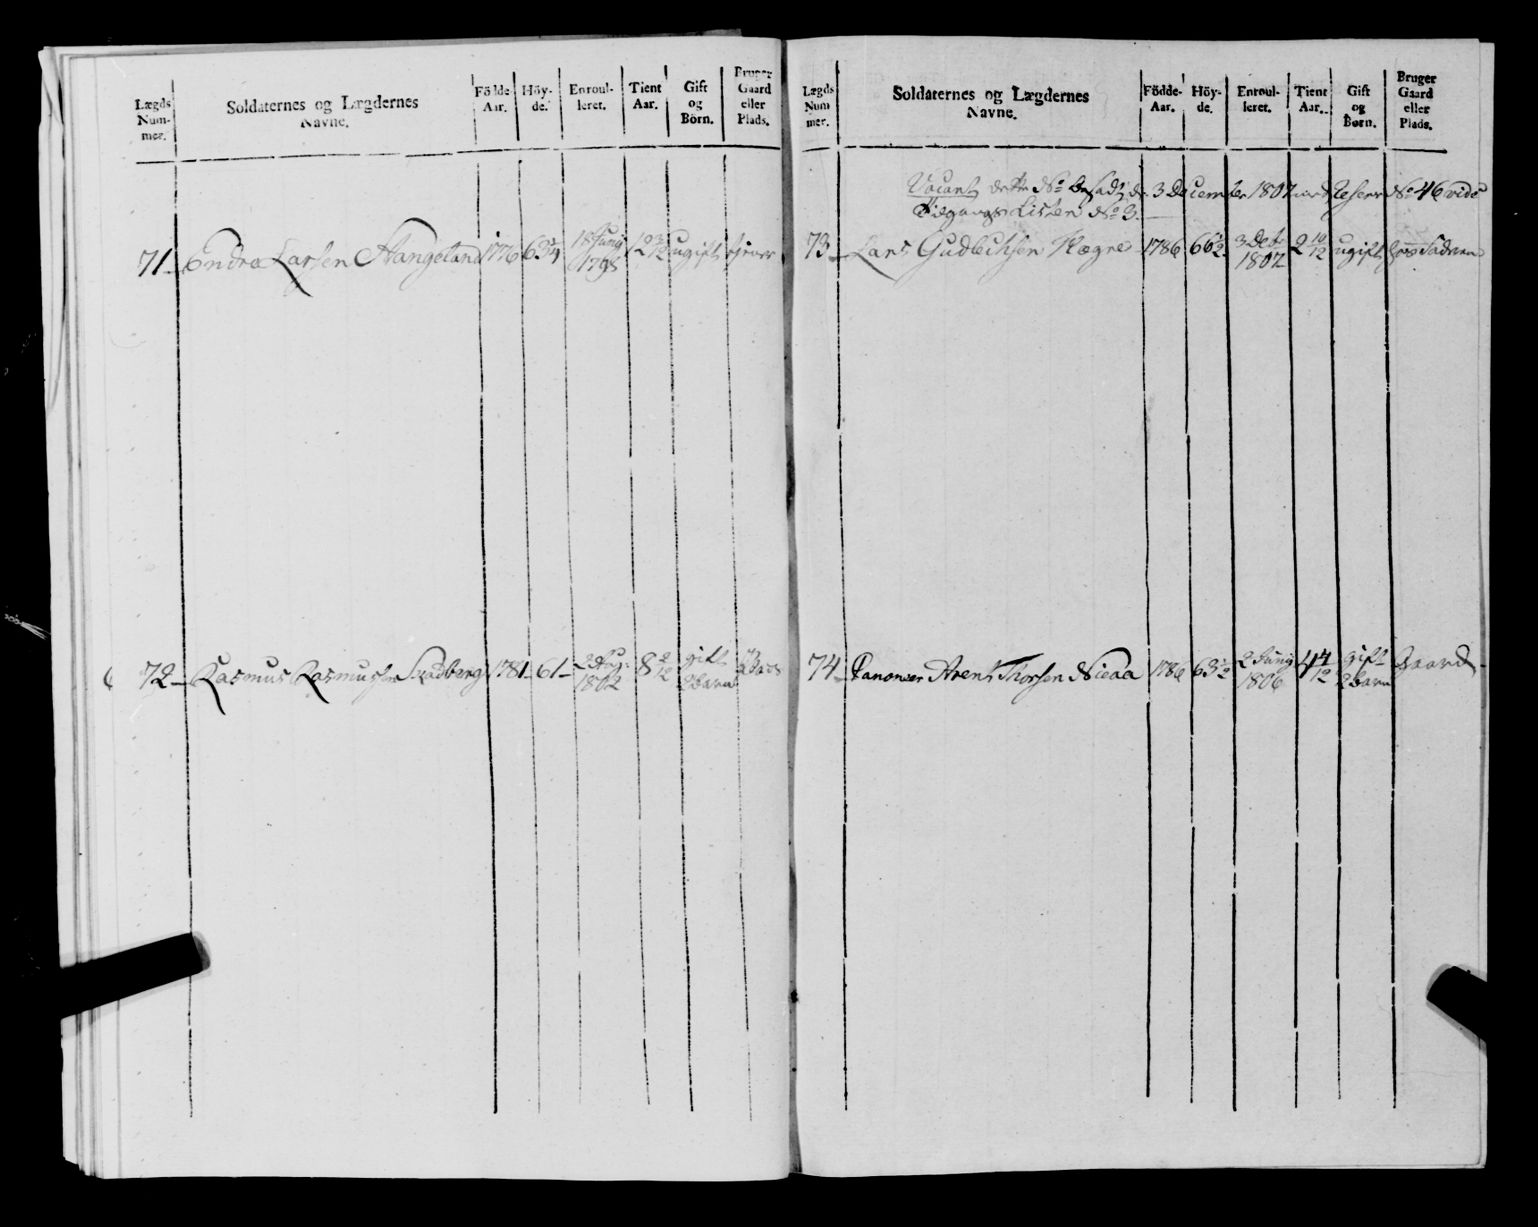 Lægds Num- mer.
Soldaternes og Lægdernes Navne.
Födde Aar.
Höy- de.
Enroul- leret.
Tient Aar.
Gift og Börn.
Bruger Gaard eller Plads.
71 Endre Larsen Stangeland 1776 63 1/4 18 Juny 1798 12 3/12 ugift tjener
72 Rasmus Rasmussen Svadberg 1781 61 2 Aug: 1802 8 2/12 gift 2 Barn Plads
Lægds Num mer.
Soldaternes og Lægdernes Navne.
Födde- Aar.
Höy- de.
Enroul- leret.
Tient Aar.
Gift og Børn.
Bruger Gaard eller Plads.
Vacant, dette No besadt d. 3 December 1807 med Reserv No 46 vide
Tilgangs Listen No 3.
73 Lars Gudbrandsen 1786 66 1/2 3 Decbr 1807 2 10/12 ugift hos Faderen
74 Canoneer Arent Thorsen Nicaa 1786 63 1/2 2 Juny 1806 4 4/12 gift 2 Barn Gaard